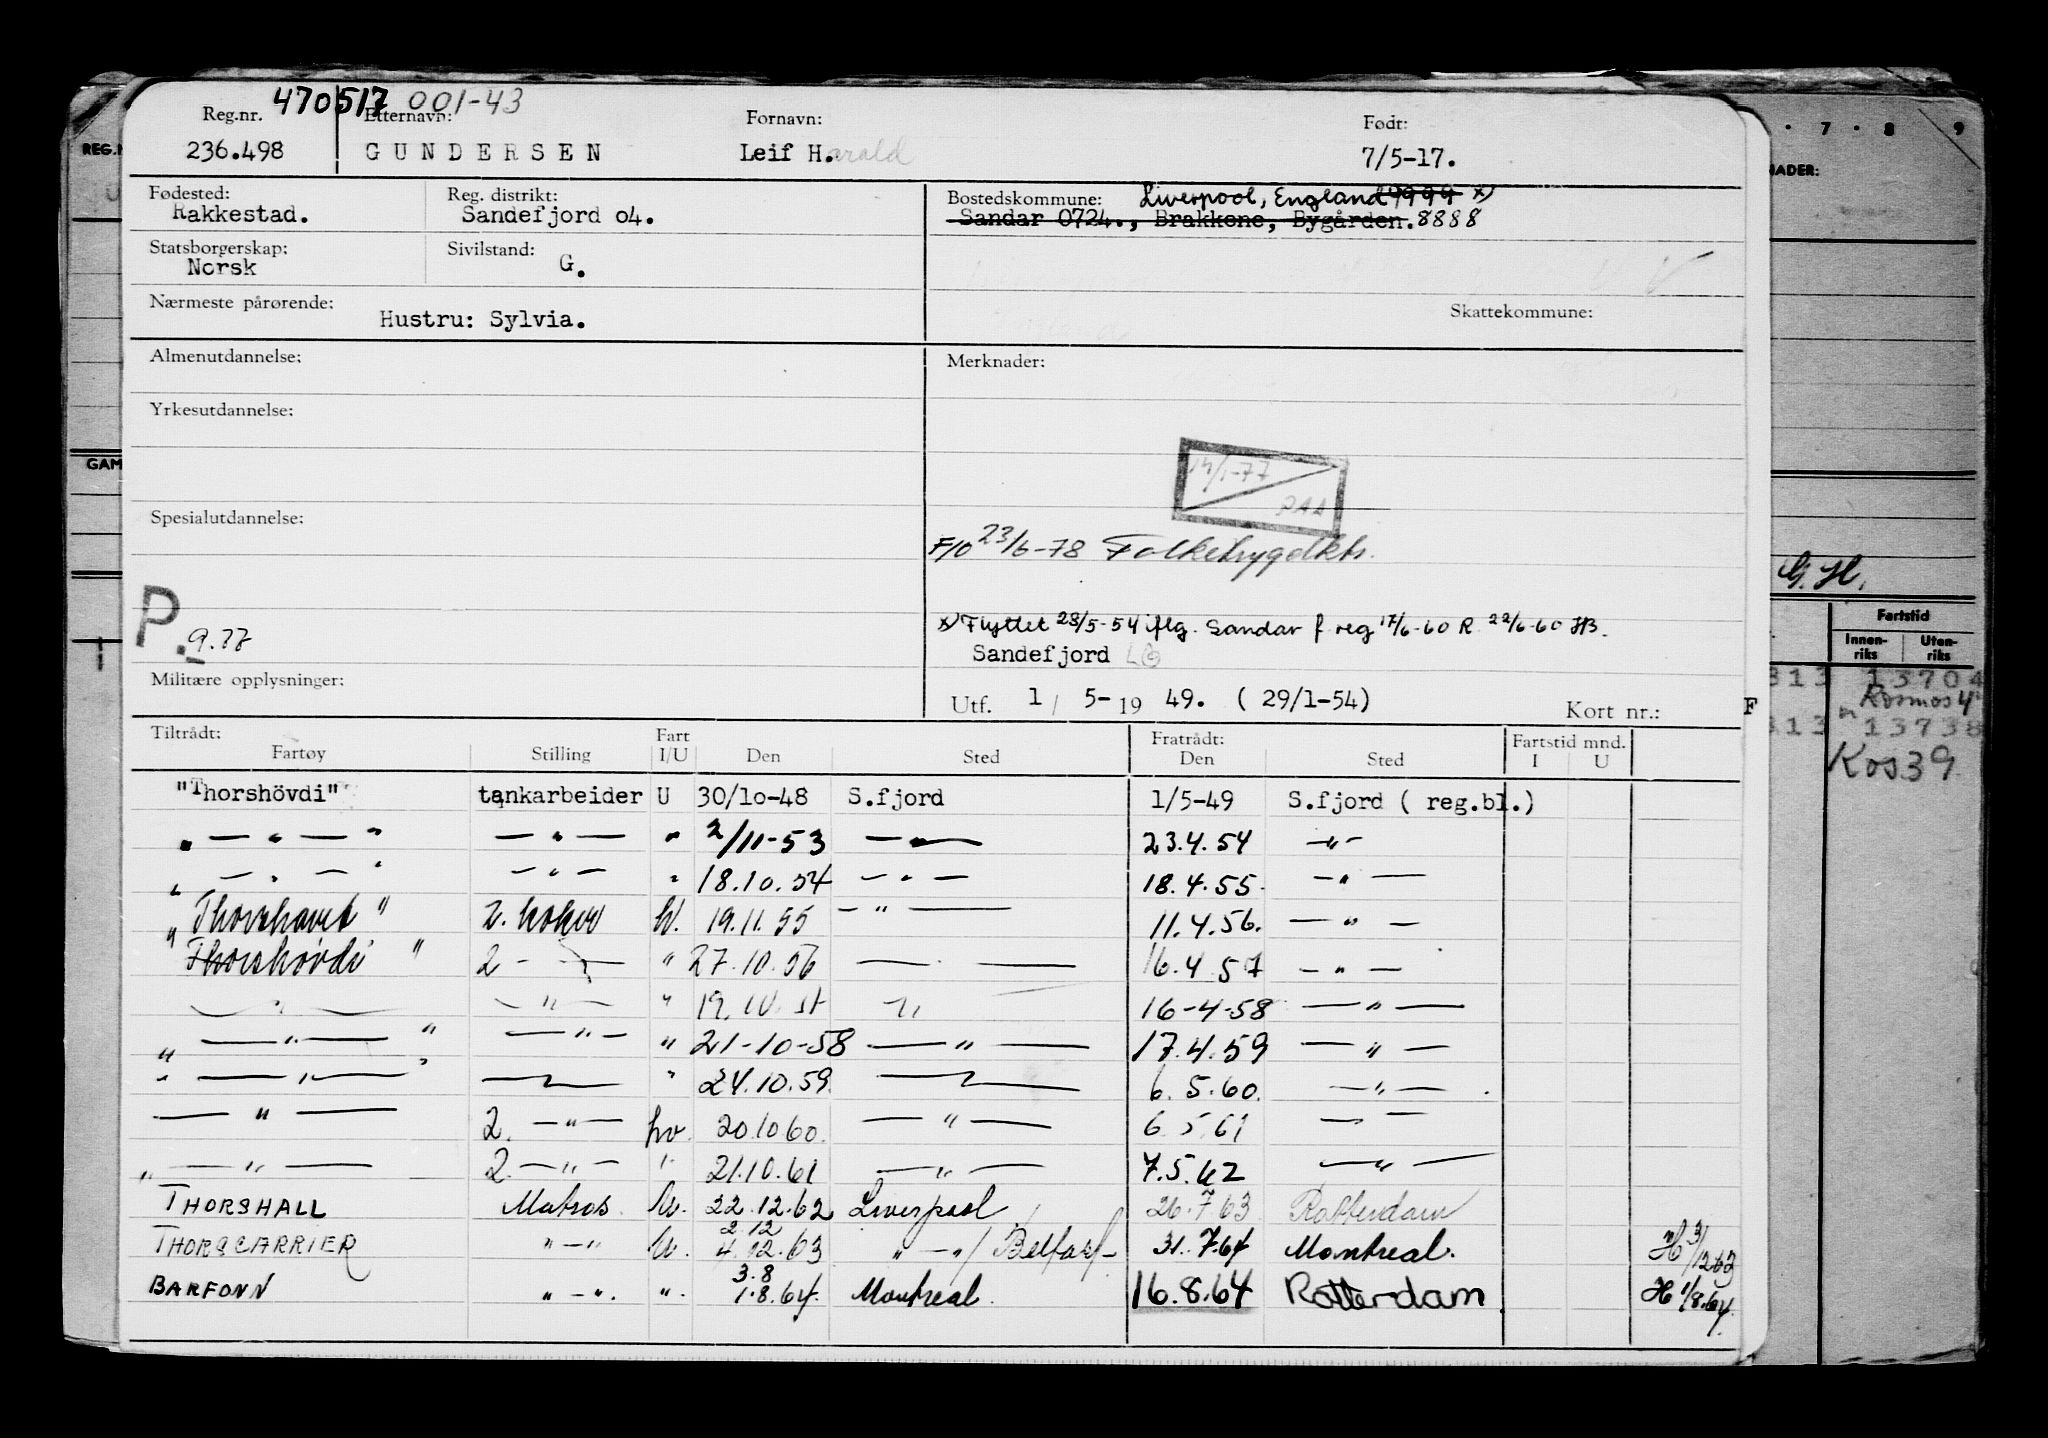 470517 001-43
Reg.nr. Etternavn: Fornavn: Født:
236.498 GUNDERSEN Leif H.arald 7/5-17.
Fødested: Reg. distrikt: Bostedskommune: Liverpool, England 9999 x)
Rakkestad. Sandefjord o4. Sandar 0724., Brakkene, Bygården. 8888
Statsborgerskap: Sivilstand:
Norsk G.
Nærmeste pårørende: Skattekommune:
Hustru: Sylvia.
Almenutdannelse: Merknader:
Yrkesutdannelse:
14/1-77
PAA
Spesialutdannelse:
F/O 23/6-78 Folketrygdktr.
P. 9.77
x) Flyttet 28/5-54 iflg. Sandar f.reg 17/6-60 R. 22/6-60 HB.
Sandefjord
Militære opplysninger:
Utf. 1 / 5- 19 49. ( 29/1-54) Kort nr.:
Tiltrådt: Fart Fratrådt: Fartstid mnd.
Fartøy Stilling I/U Den Sted Den Sted I U
"Thorshövdi" tankarbeider U 30/10-48 S.fjord 1/5-49 S.fjord ( reg.bl.)
" — " — " — " — " 2/11-53 — " — 23.4.54 — " —
" — " — " — " — " 18.10.54 — " — 18.4.55. — " —
"Thorshavet" 2. koker U. 19.11.55 — " — 11.4.56. — " —
"Thorshövdi" 2 - — " 27.10.56 — " — 16.4.57 — " —
— " — — " — " 19.10.57 — " — 16-4-58 — " —
" — " — " — " — " 21-10-58 — " — 17.4.59 — " —
" — " — " — " — " 24.10.59. — " — 6.5.60. — " —
— " — 2. — " — hv. 20.10.60. — " — 6.5.61 — " —
" — " — 2. — " — " 21.10.61 — " — 7.5.62 — " —
THORSHALL Matros. U. 22.12.62 Liverpool 26.7.63 Rotterdam
THORSCARRIER " — " U. 2.12 4.12.63 " — " / Belfast 31.7.64 Montreal. H 3/12 63
BARFONN " — ". ". 3.8 1.8.64. Montreal. 16.8.64 Rotterdam H 1/8.64.
REG.N
GAM
7 · 8 9
NADER:
G. H.
Fartstid
Innen-riks Uten-riks
313 13704
Kosmos 4
313 13738
Kos 39
F